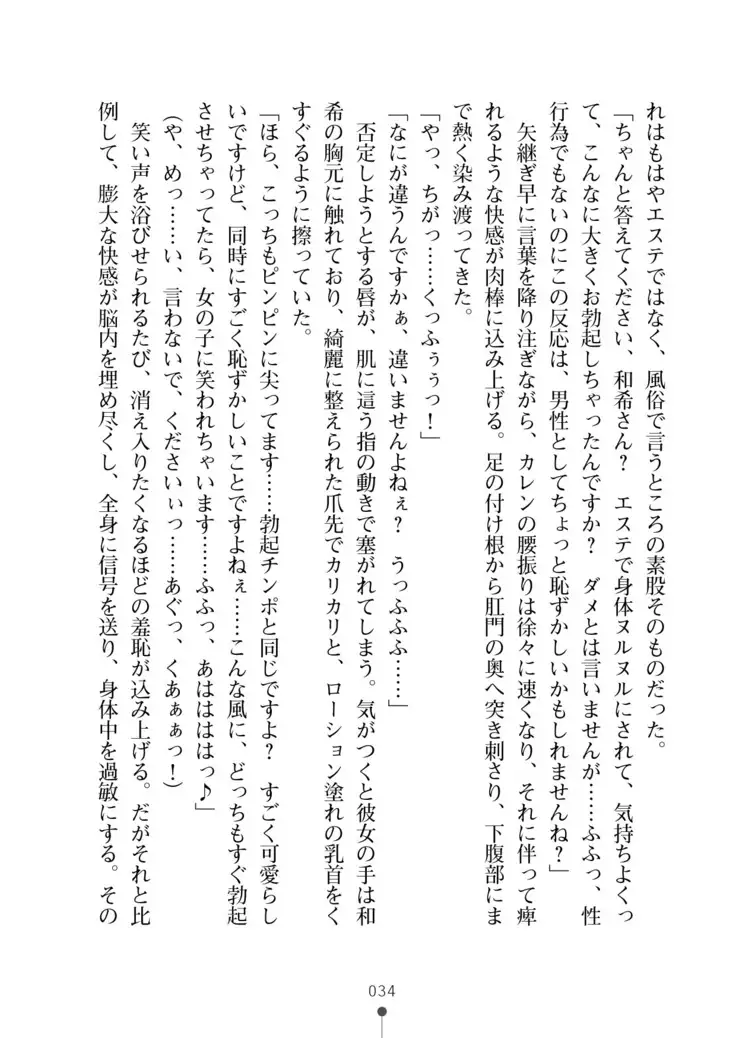 れはもはやエステではなく、風俗で言うところの素股そのものだった。
「ちゃんと答えてください、和希さん？　エステで身体ヌルヌルにされて、気持ちよくっ
て、こんなに大きくお勃起しちゃったんですか？　ダメとは言いませんが……ふふっ、性
行為でもないのにこの反応は、男性としてちょっと恥ずかしいかもしれませんね？」
　矢継ぎ早に言葉を降り注ぎながら、カレンの腰振りは徐々に速くなり、それに伴って痺
れるような快感が肉棒に込み上げる。足の付け根から肛門の奥へ突き刺さり、下腹部にま
で熱く染み渡ってきた。
「やっ、ちがっ……くっふぅぅっ！」
「なにが違うんですかぁ、違いませんよねぇ？　うっふふふ……」
　否定しようとする唇が、肌に這う指の動きで塞がれてしまう。気がつくと彼女の手は和
希の胸元に触れており、綺麗に整えられた爪先でカリカリと、ローション塗れの乳首をく
すぐるように擦っていた。
「ほら、こっちもピンピンに尖ってます……勃起チンポと同じですよ？　すごく可愛らし
いですけど、同時にすごく恥ずかしいことですよねぇ……こんな風に、どっちもすぐ勃起
させちゃってたら、女の子に笑われちゃいます……ふふっ、あははははっ♪」
（や、めっ……い、言わないで、くださいぃっ……あぐっ、くあぁぁっ！）
　笑い声を浴びせられるたび、消え入りたくなるほどの羞恥が込み上げる。だがそれと比
例して、膨大な快感が脳内を埋め尽くし、全身に信号を送り、身体中を過敏にする。その
034